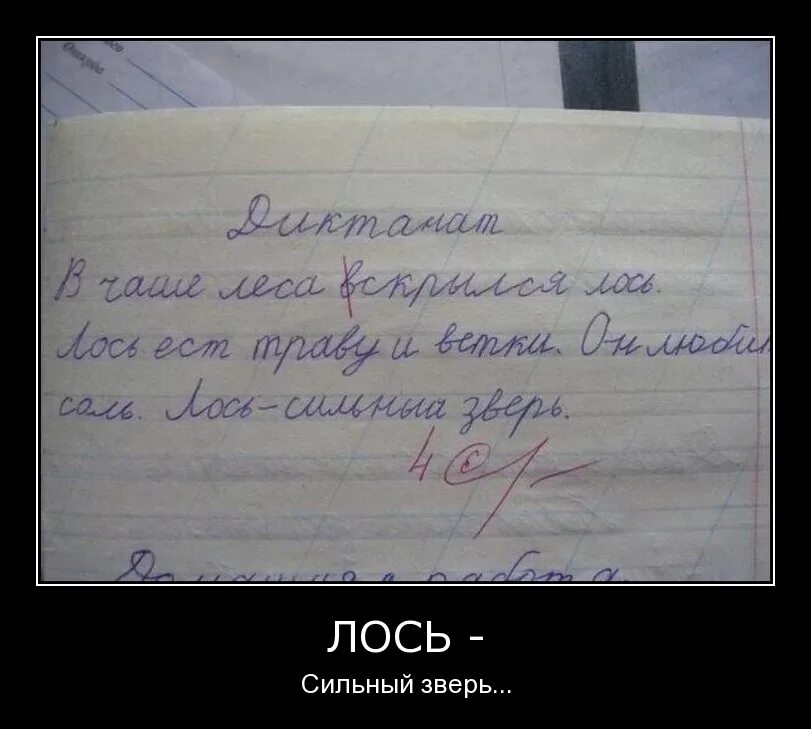 Откуда
Диктанат
В чаше леса вскрылся лось.
Лось ест траву и ветки. Он любит
соль. Лось-сильный зверь.
4
Домашняя работа.
ЛОСЬ -
Сильный зверь...